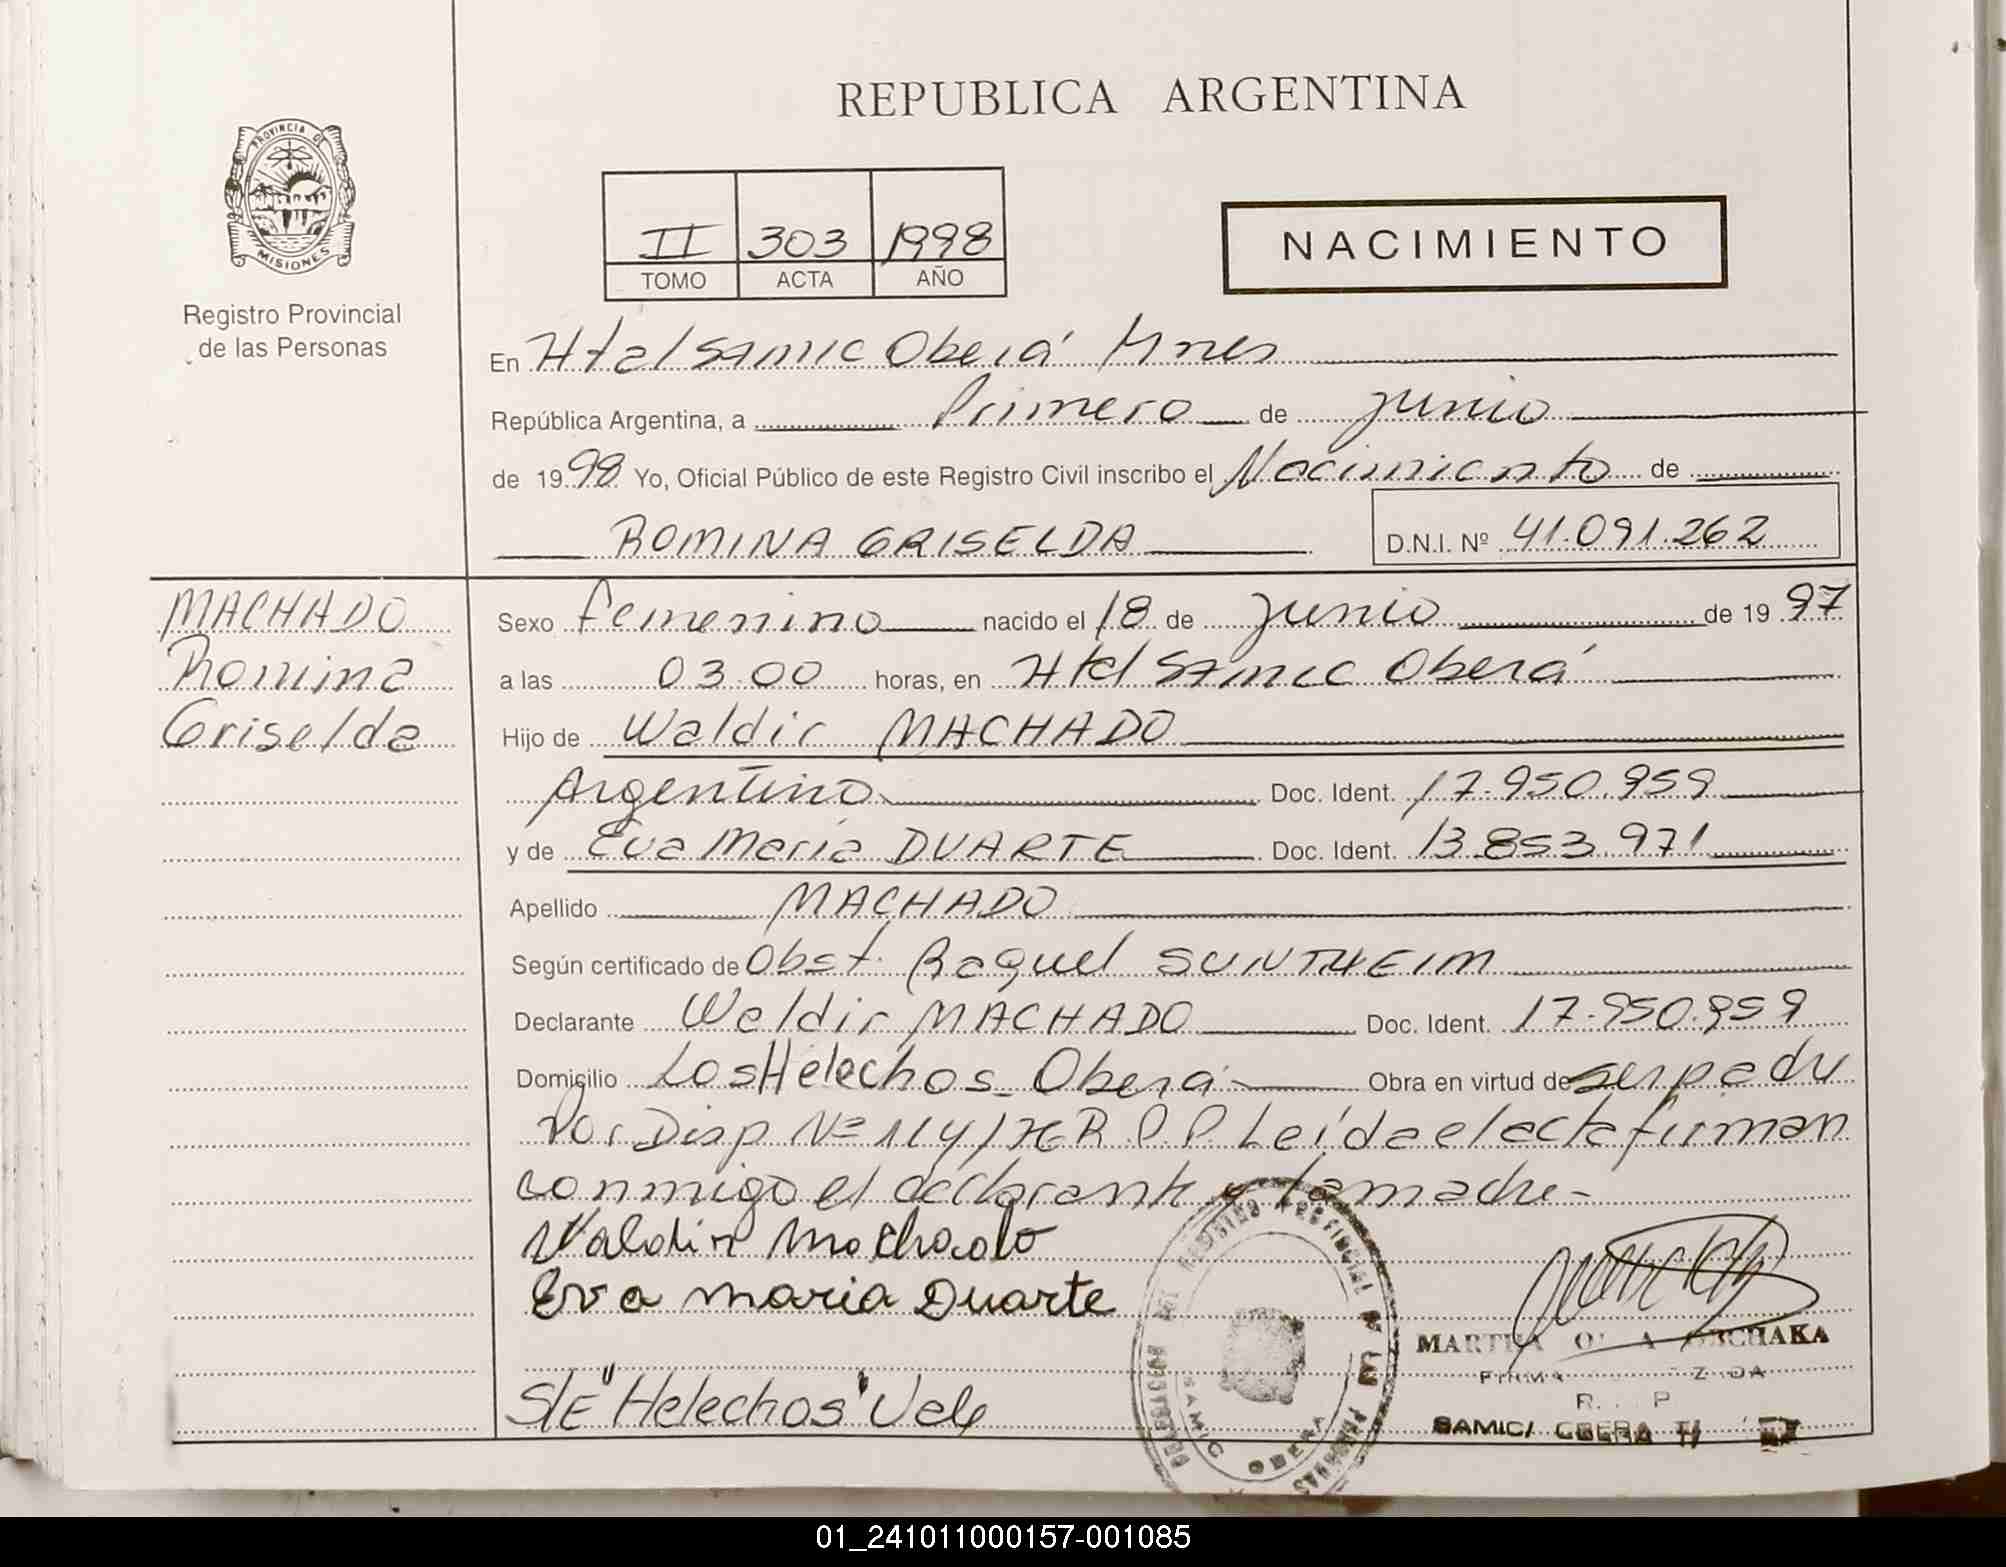 REPUBLICA ARGENTINA
PROVINCIA DE
MISIONES
Registro Provincial
de las Personas
II 303 1998
TOMO ACTA AÑO
NACIMIENTO
En Htal SAMIC Oberá Mnes
República Argentina, a Primero de junio
de 1998 Yo, Oficial Público de este Registro Civil inscribo el Nacimiento de
ROMINA GRISELDA D.N.I. Nº 41.091.262
MACHADO
Romina
Griselda
Sexo femenino nacido el 18 de junio de 1997
a las 03.00 horas, en Htal SAMIC Oberá
Hijo de Waldir MACHADO
Argentino Doc. Ident. 17.950.959
y de Eva Maria DUARTE Doc. Ident. 13.853.971
Apellido MACHADO
Según certificado de Obst. Raquel SUNTHEIM
Declarante Waldir MACHADO Doc. Ident. 17.950.959
Domicilio Los Helechos Oberá Obra en virtud de ser padre
Por Disp Nº 114/76 R.P.P. Leída el acta firman
conmigo el declarante y la madre-
Valdir Machado
Eva maria Duarte
S/E "Helechos" Vale
MARTHA
SAMIC OBERA
SAMIC/ OBERA
01_241011000157-001085